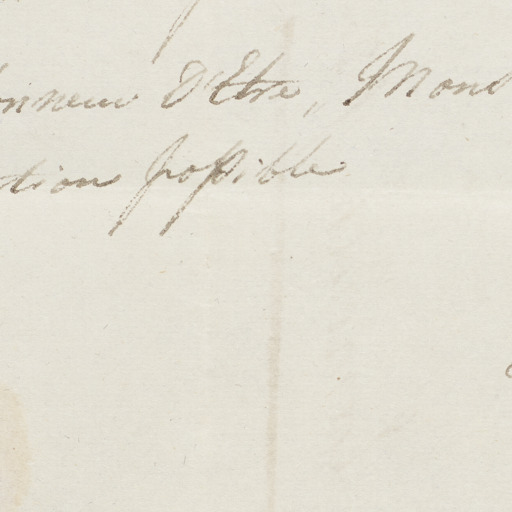 onneur d'Etre, Mons
tion possible